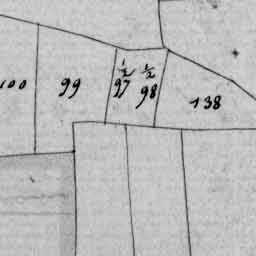 100
99
1/2 97
1/2 98
138